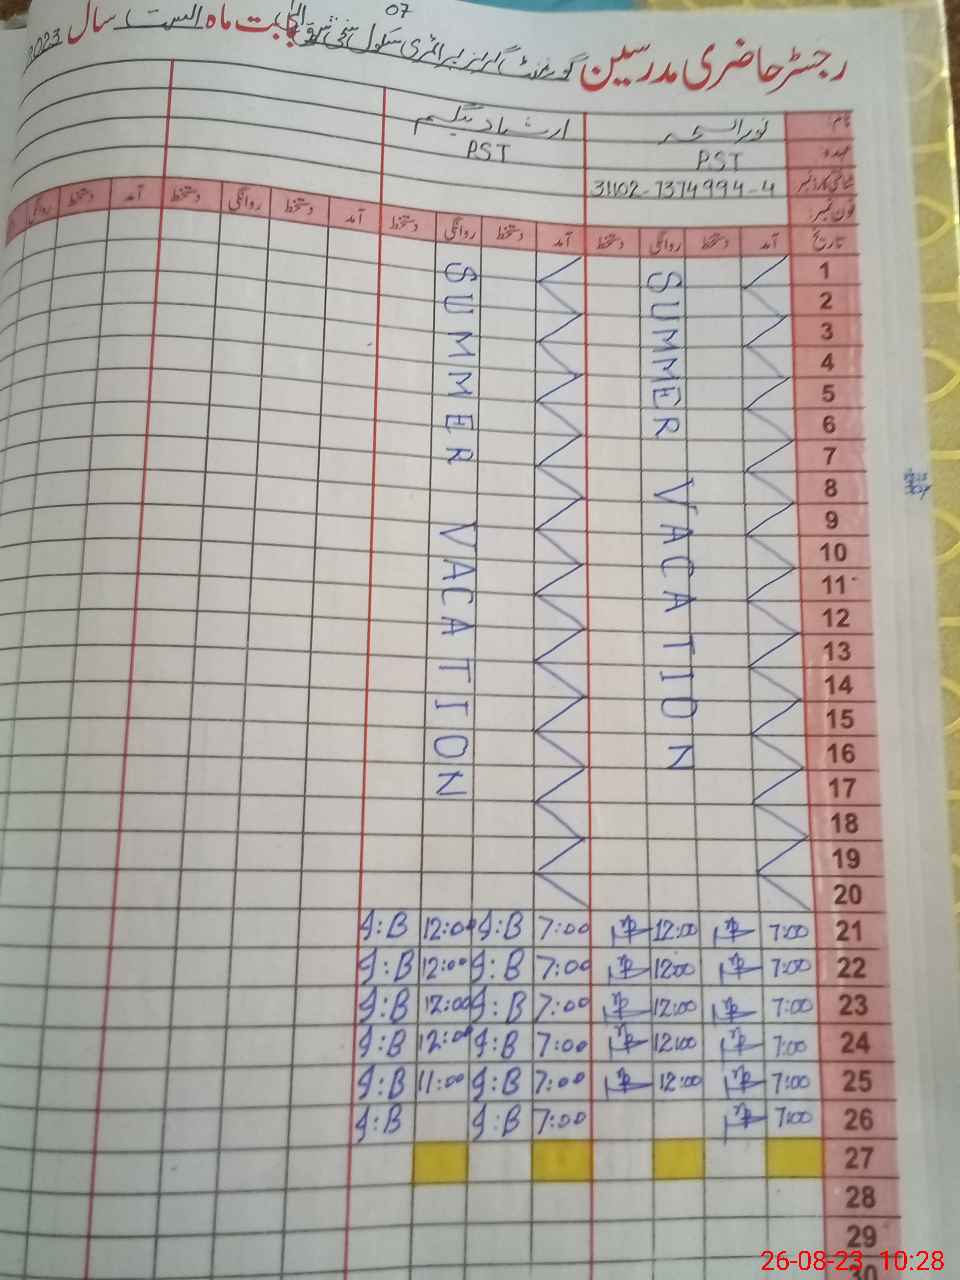 07
رجسٹر حاضری مدرسین گورنمنٹ گرلز پرائمری سکول بابت ماہ اگست سال 2023
نام: نور ارشاد بیگم
عہدہ PST PST
شناختی کارڈ نمبر 31102-7374994-4
فون نمبر:
تاریخ آمد دستخط روانگی دستخط آمد دستخط روانگی دستخط آمد دستخط روانگی دستخط آمد دستخط روانگی
SUMMER VACATION
SUMMER VACATION
1
2
3
4
5
6
7
8
9
10
11
12
13
14
15
16
17
18
19
20
21 7:00 12:00 7:00 J:B 12:00 J:B
22 7:00 12:00 7:00 J:B 12:00 J:B
23 7:00 12:00 7:00 J:B 12:00 J:B
24 7:00 12:00 7:00 J:B 12:00 J:B
25 7:00 12:00 7:00 J:B 11:00 J:B
26 7:00 7:00 J:B J:B
27
28
29
30
26-08-23 10:28